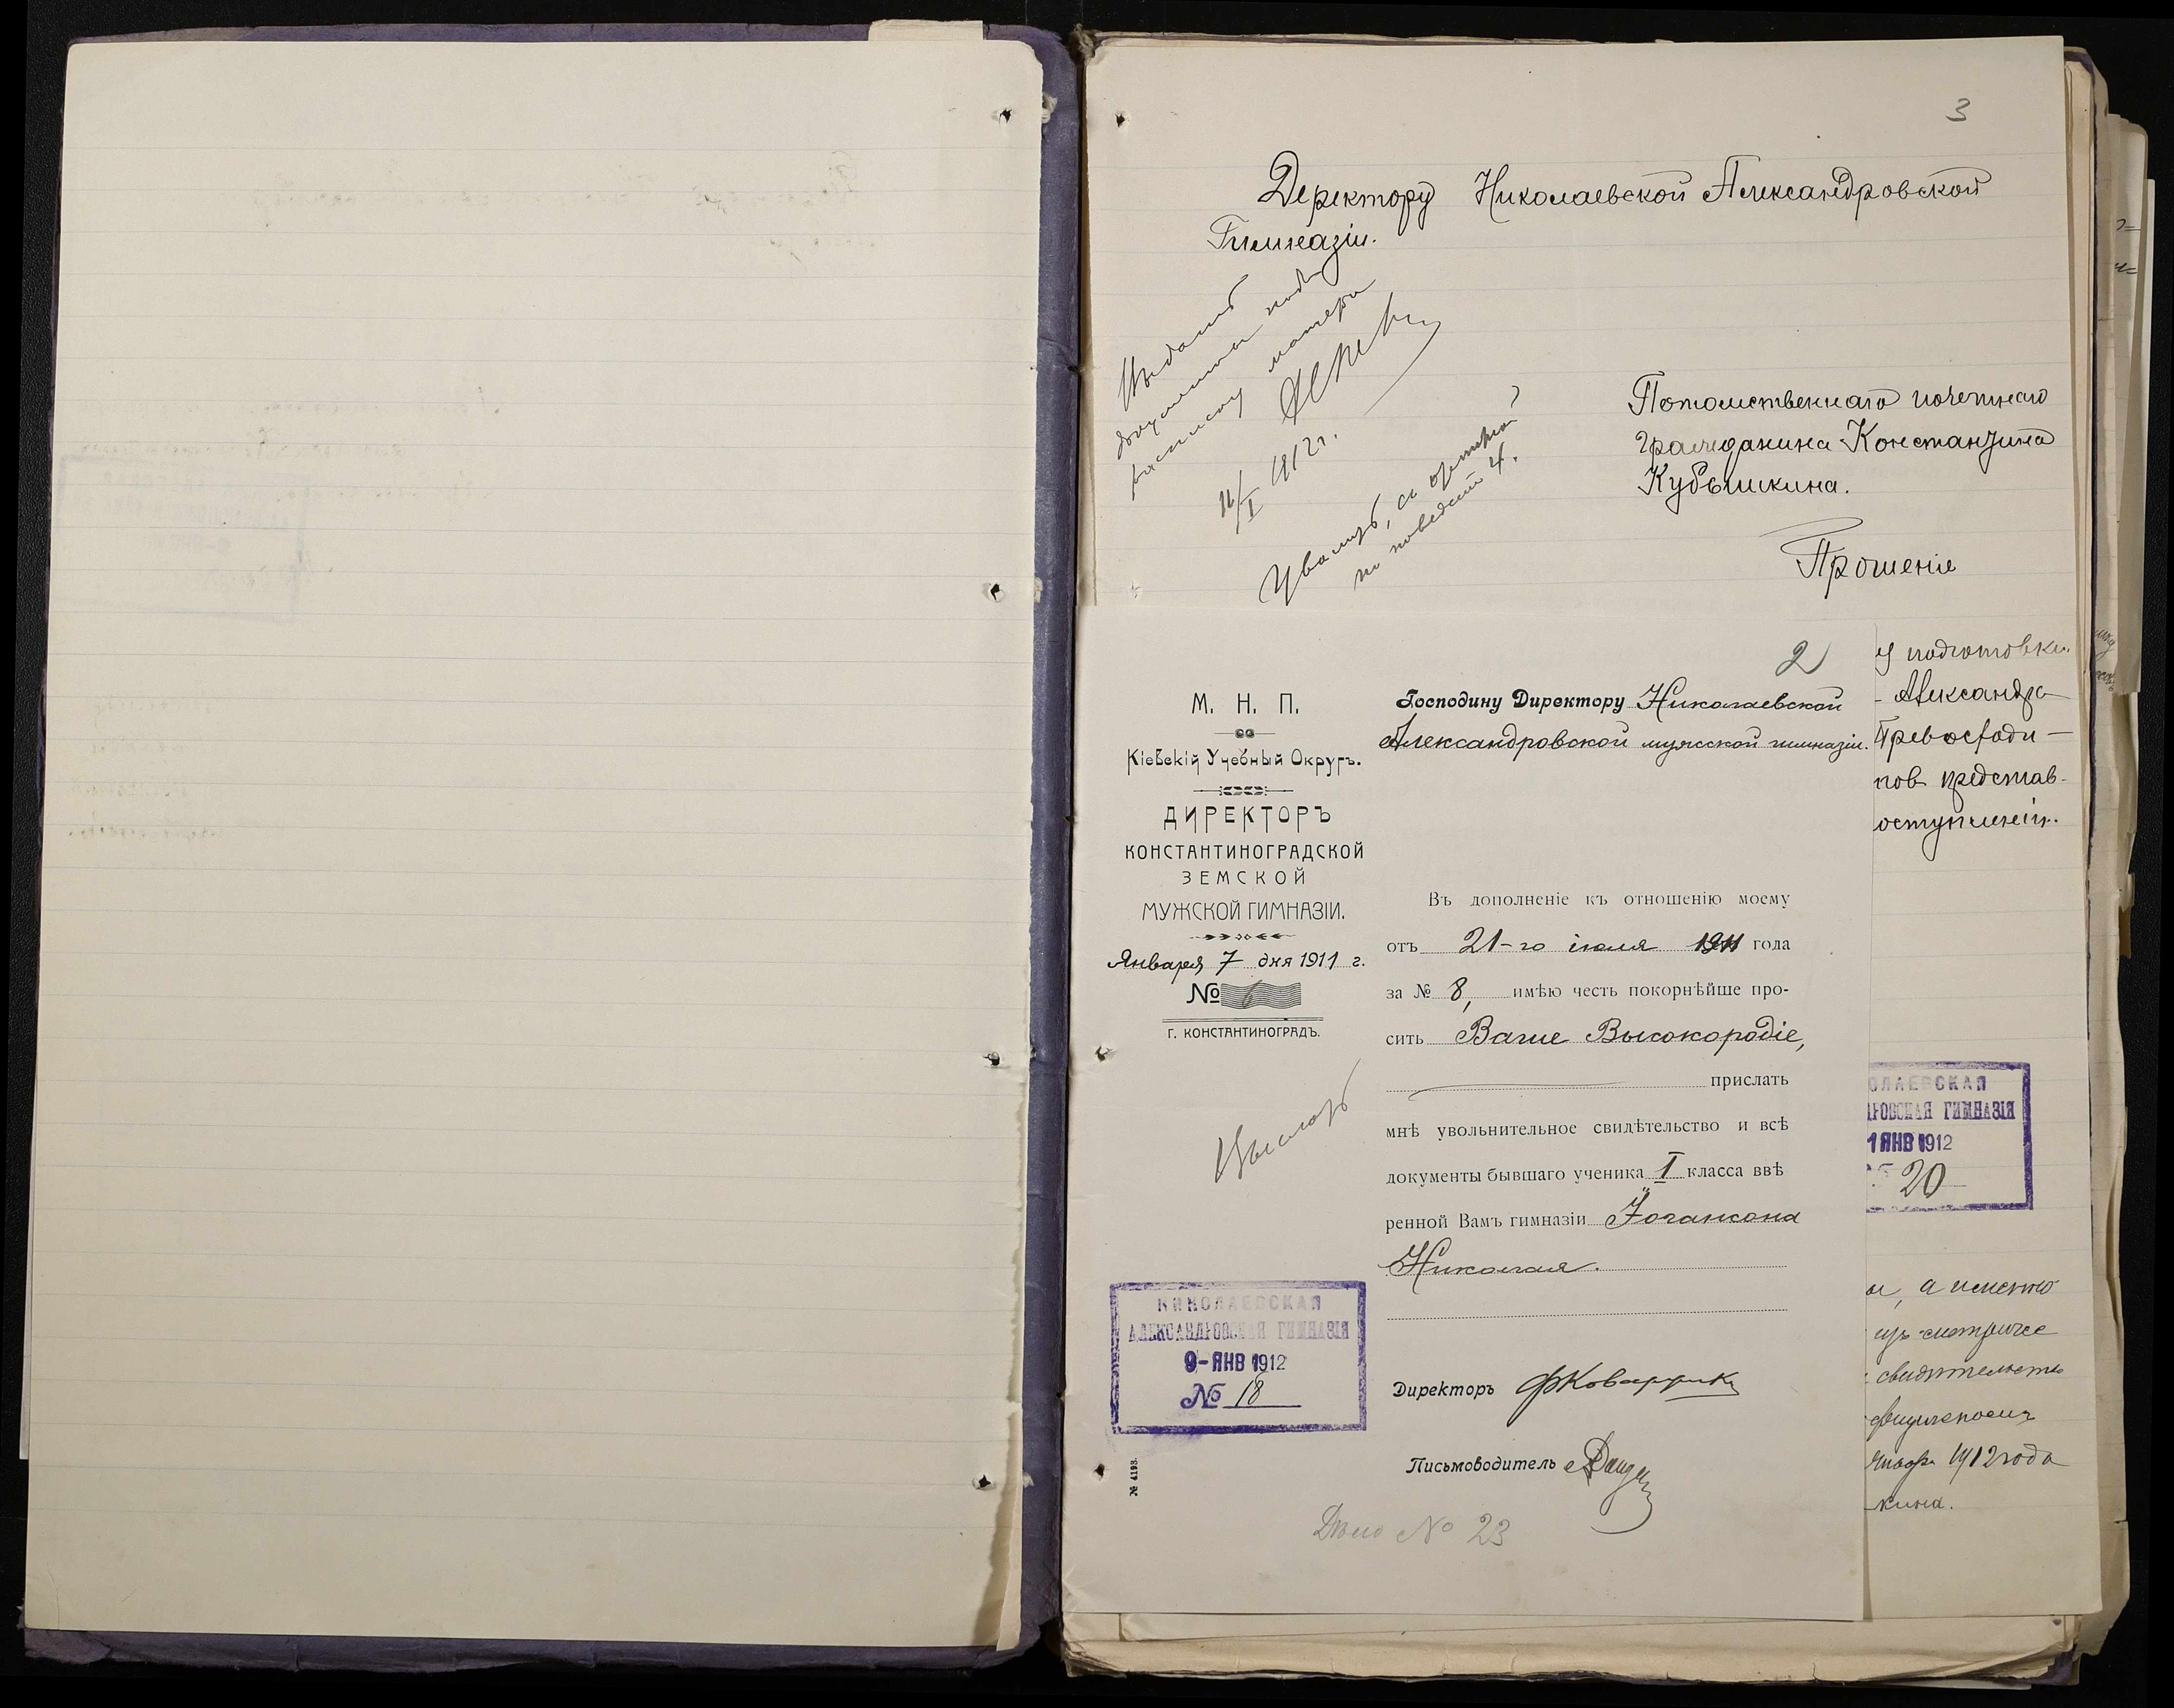 3
Деректору Николаевской Александровской
Гимназіи.
Выдать
документы подъ
расписку матери
11/I 1912 г.
Уволить, съ отметкой
по поведенію 4.
Потомственнаго почетнаго
гражданина Константина
Кубышкина.
Прошеніе
2
М. Н. П.
Кіевскій Учебный Округъ.
ДИРЕКТОРЪ
КОНСТАНТИНОГРАДСКОЙ
ЗЕМСКОЙ
МУЖСКОЙ ГИМНАЗІИ.
Января 7 дня 1911 г.
№ 6
г. КОНСТАНТИНОГРАДЪ.
Выслать
Господину Директору Николаевской
Александровской мужской гимназіи.
Въ дополненіе къ отношенію моему
отъ 21-го іюля 1911 года
за № 8, имѣю честь покорнѣйше про-
сить Ваше Высокородіе,
прислать
мнѣ увольнительное свидѣтельство и всѣ
документы бывшаго ученика I класса ввѣ
ренной Вамъ гимназіи Іогансона
Николая.
Директоръ
Письмоводитель
Дѣло № 23
НИКОЛАЕВСКАЯ
АЛЕКСАНДРОВСКАЯ ГИМНАЗІЯ
9-ЯНВ 1912
№ 18
№ 4193.
у подготовки
Александра
Превосходи—
представ-
оступленіи.
ОЛАЕВСКАЯ
РОВСКАЯ ГИМНАЗІЯ
1 ЯНВ 1912
20
а именно
свидѣтельство
1912 года
кина.